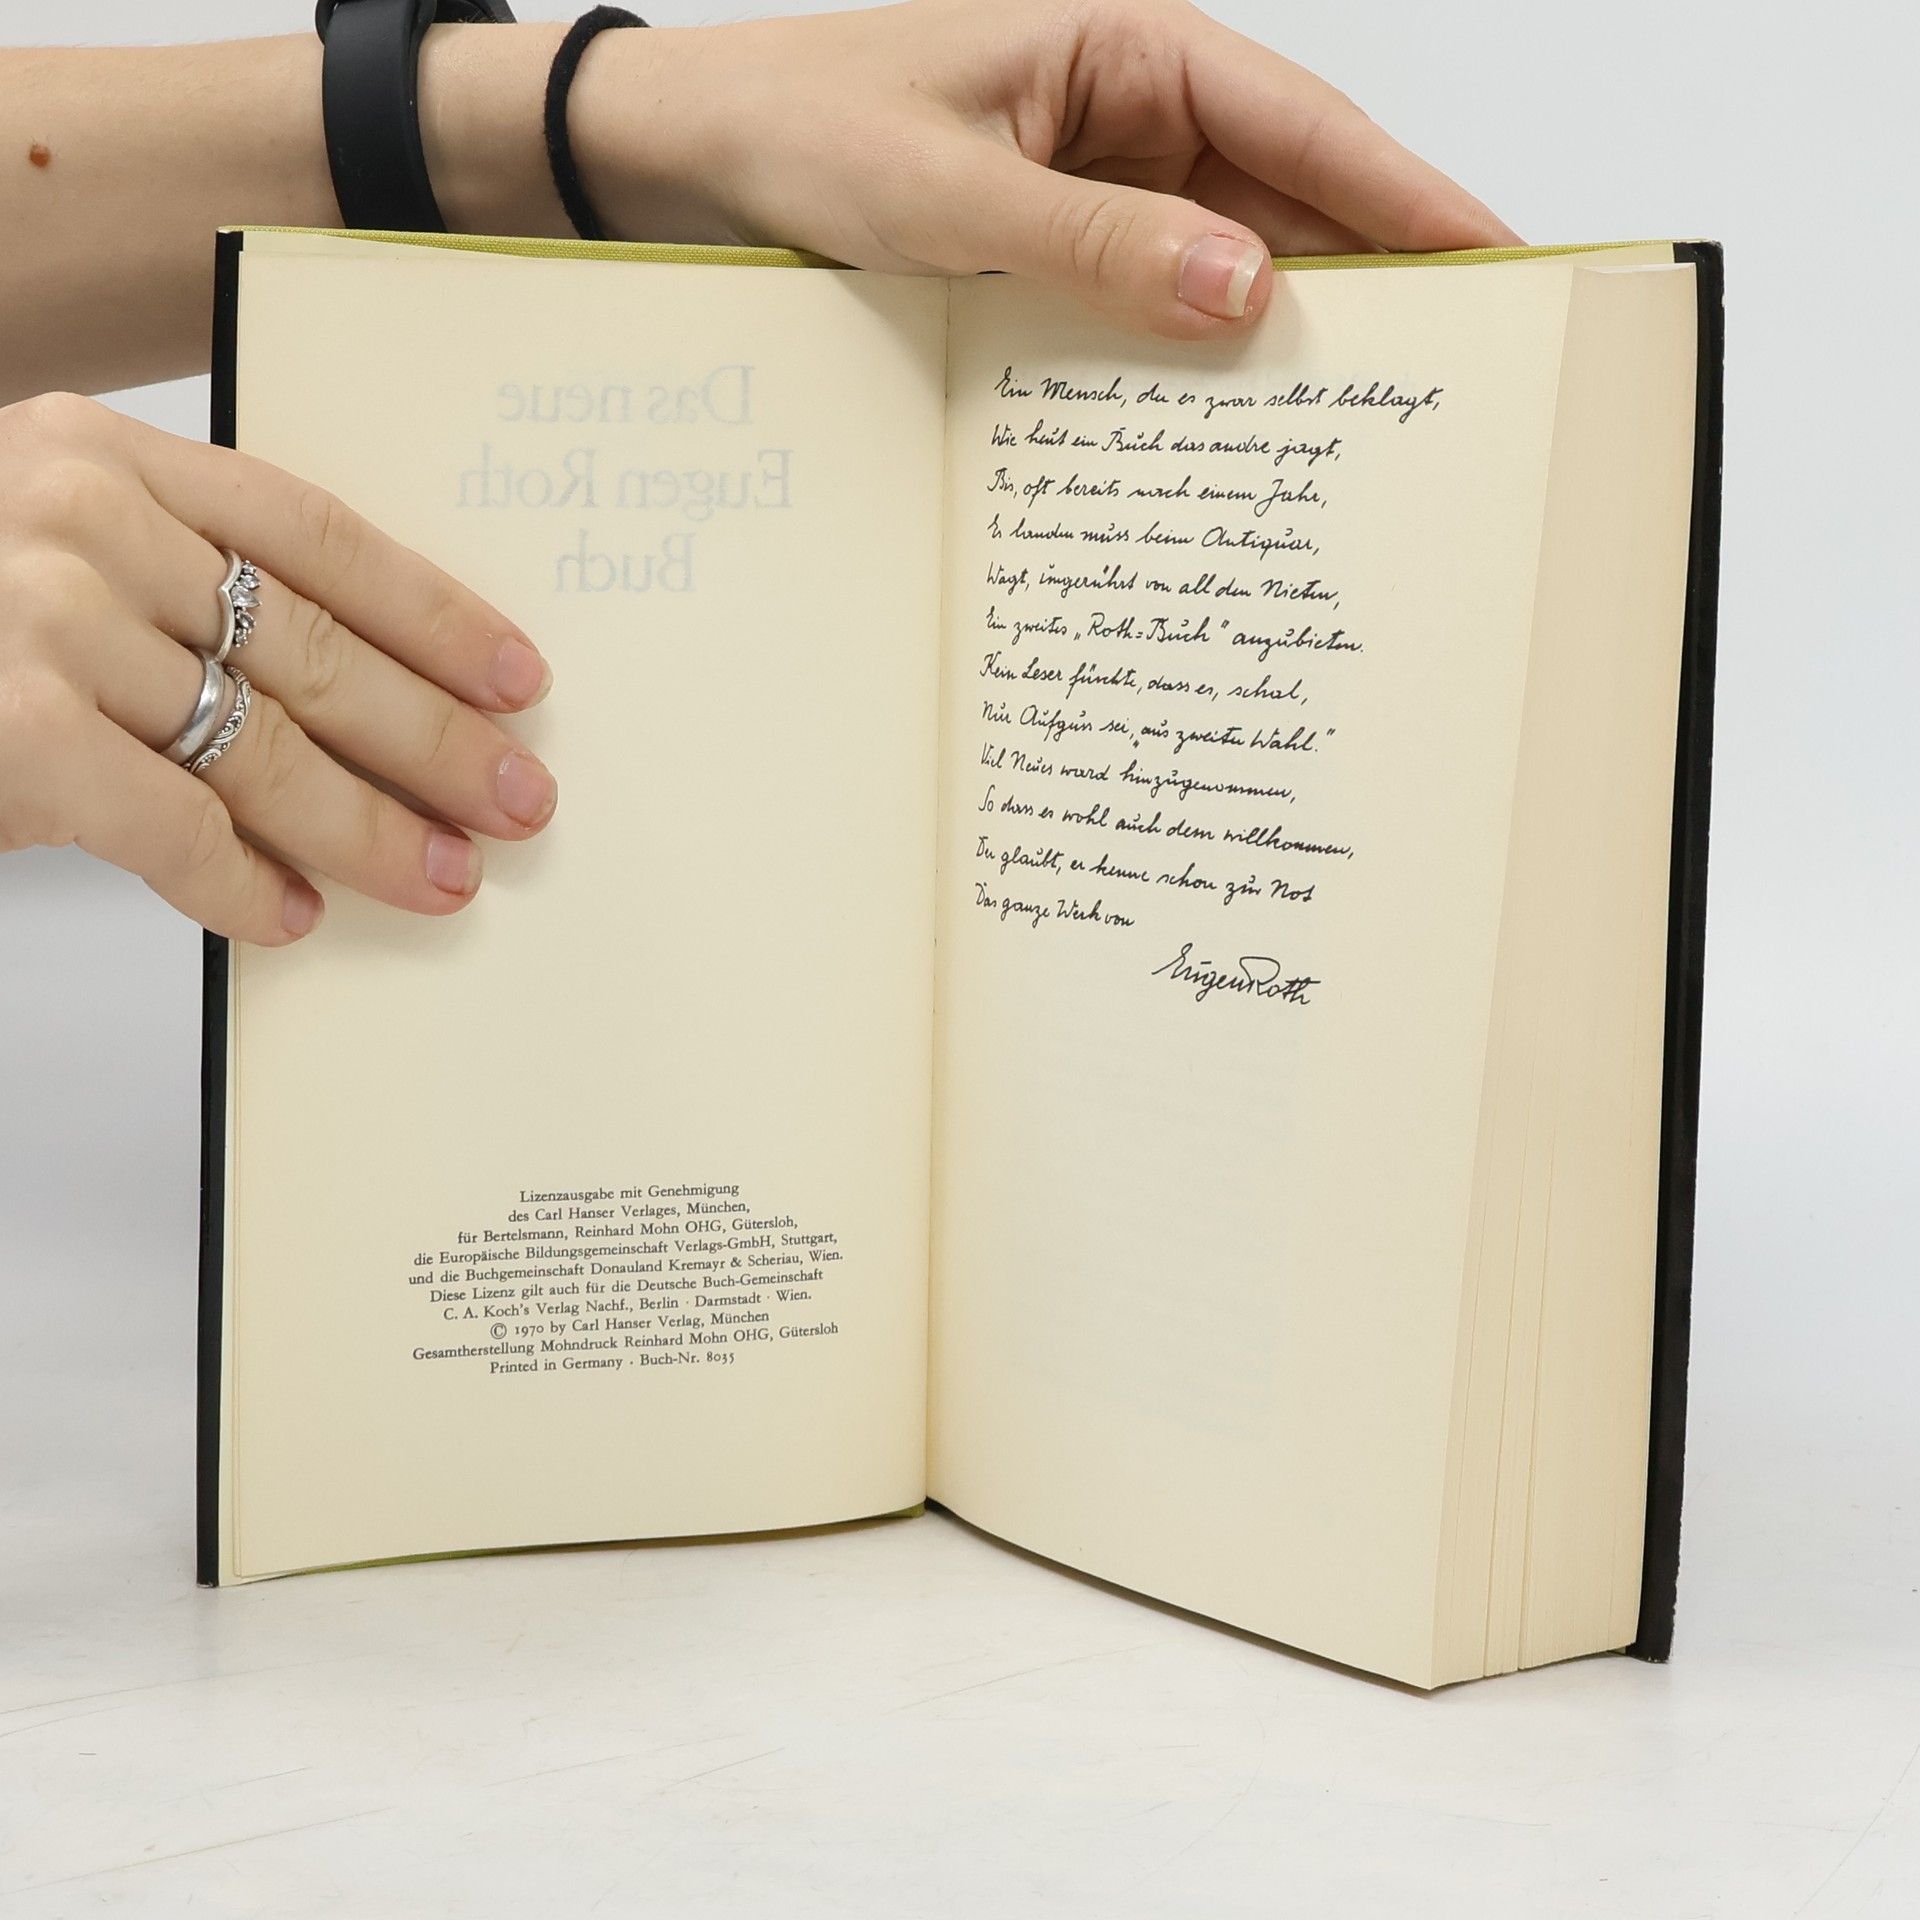 Das neue
Eugen Roth
Buch
Lizenzausgabe mit Genehmigung
des Carl Hanser Verlages, München,
für Bertelsmann, Reinhard Mohn OHG, Gütersloh,
die Europäische Bildungsgemeinschaft Verlags-GmbH, Stuttgart,
und die Buchgemeinschaft Donauland Kremayr & Scheriau, Wien.
Diese Lizenz gilt auch für die Deutsche Buch-Gemeinschaft
C. A. Koch's Verlag Nachf., Berlin · Darmstadt · Wien.
© 1970 by Carl Hanser Verlag, München
Gesamtherstellung Mohndruck Reinhard Mohn OHG, Gütersloh
Printed in Germany . Buch-Nr. 8035
Ein Mensch, der es zwar selbst beklagt,
Wie heut ein Buch das andre jagt,
Bis, oft bereits nach einem Jahr,
Es landen muss beim Antiquar,
Wagt, ungerührt von all den Nieten,
Ein zweites „Roth=Buch" anzubieten.
Kein Leser fürchte, dass es, schal,
Nur Aufguss sei, „aus zweiter Wahl."
Viel Neues ward hinzugenommen,
So dass es wohl auch dem willkommen,
Der glaubt, er kenne schon zur Not
Das ganze Werk von
Eugen Roth